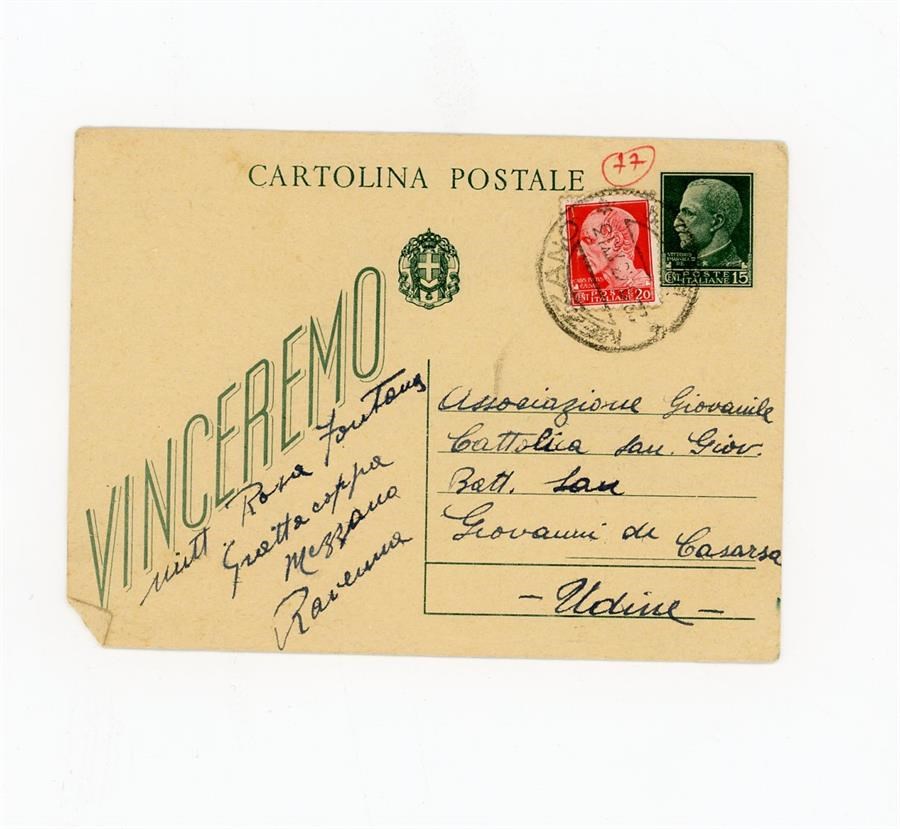 CARTOLINA POSTALE
77
VITTORIO
EMANUELE III
CENT POSTE
ITALIANE 15
POSTE
ITALIANE 20
MEZZANO
VINCEREMO
Associazione Giovanile
Cattolica San Giov.
Batt. San
Giovanni di Casarsa
- Udine -
mitt Rosa Fontana
Grattacoppa
Mezzano
Ravenna